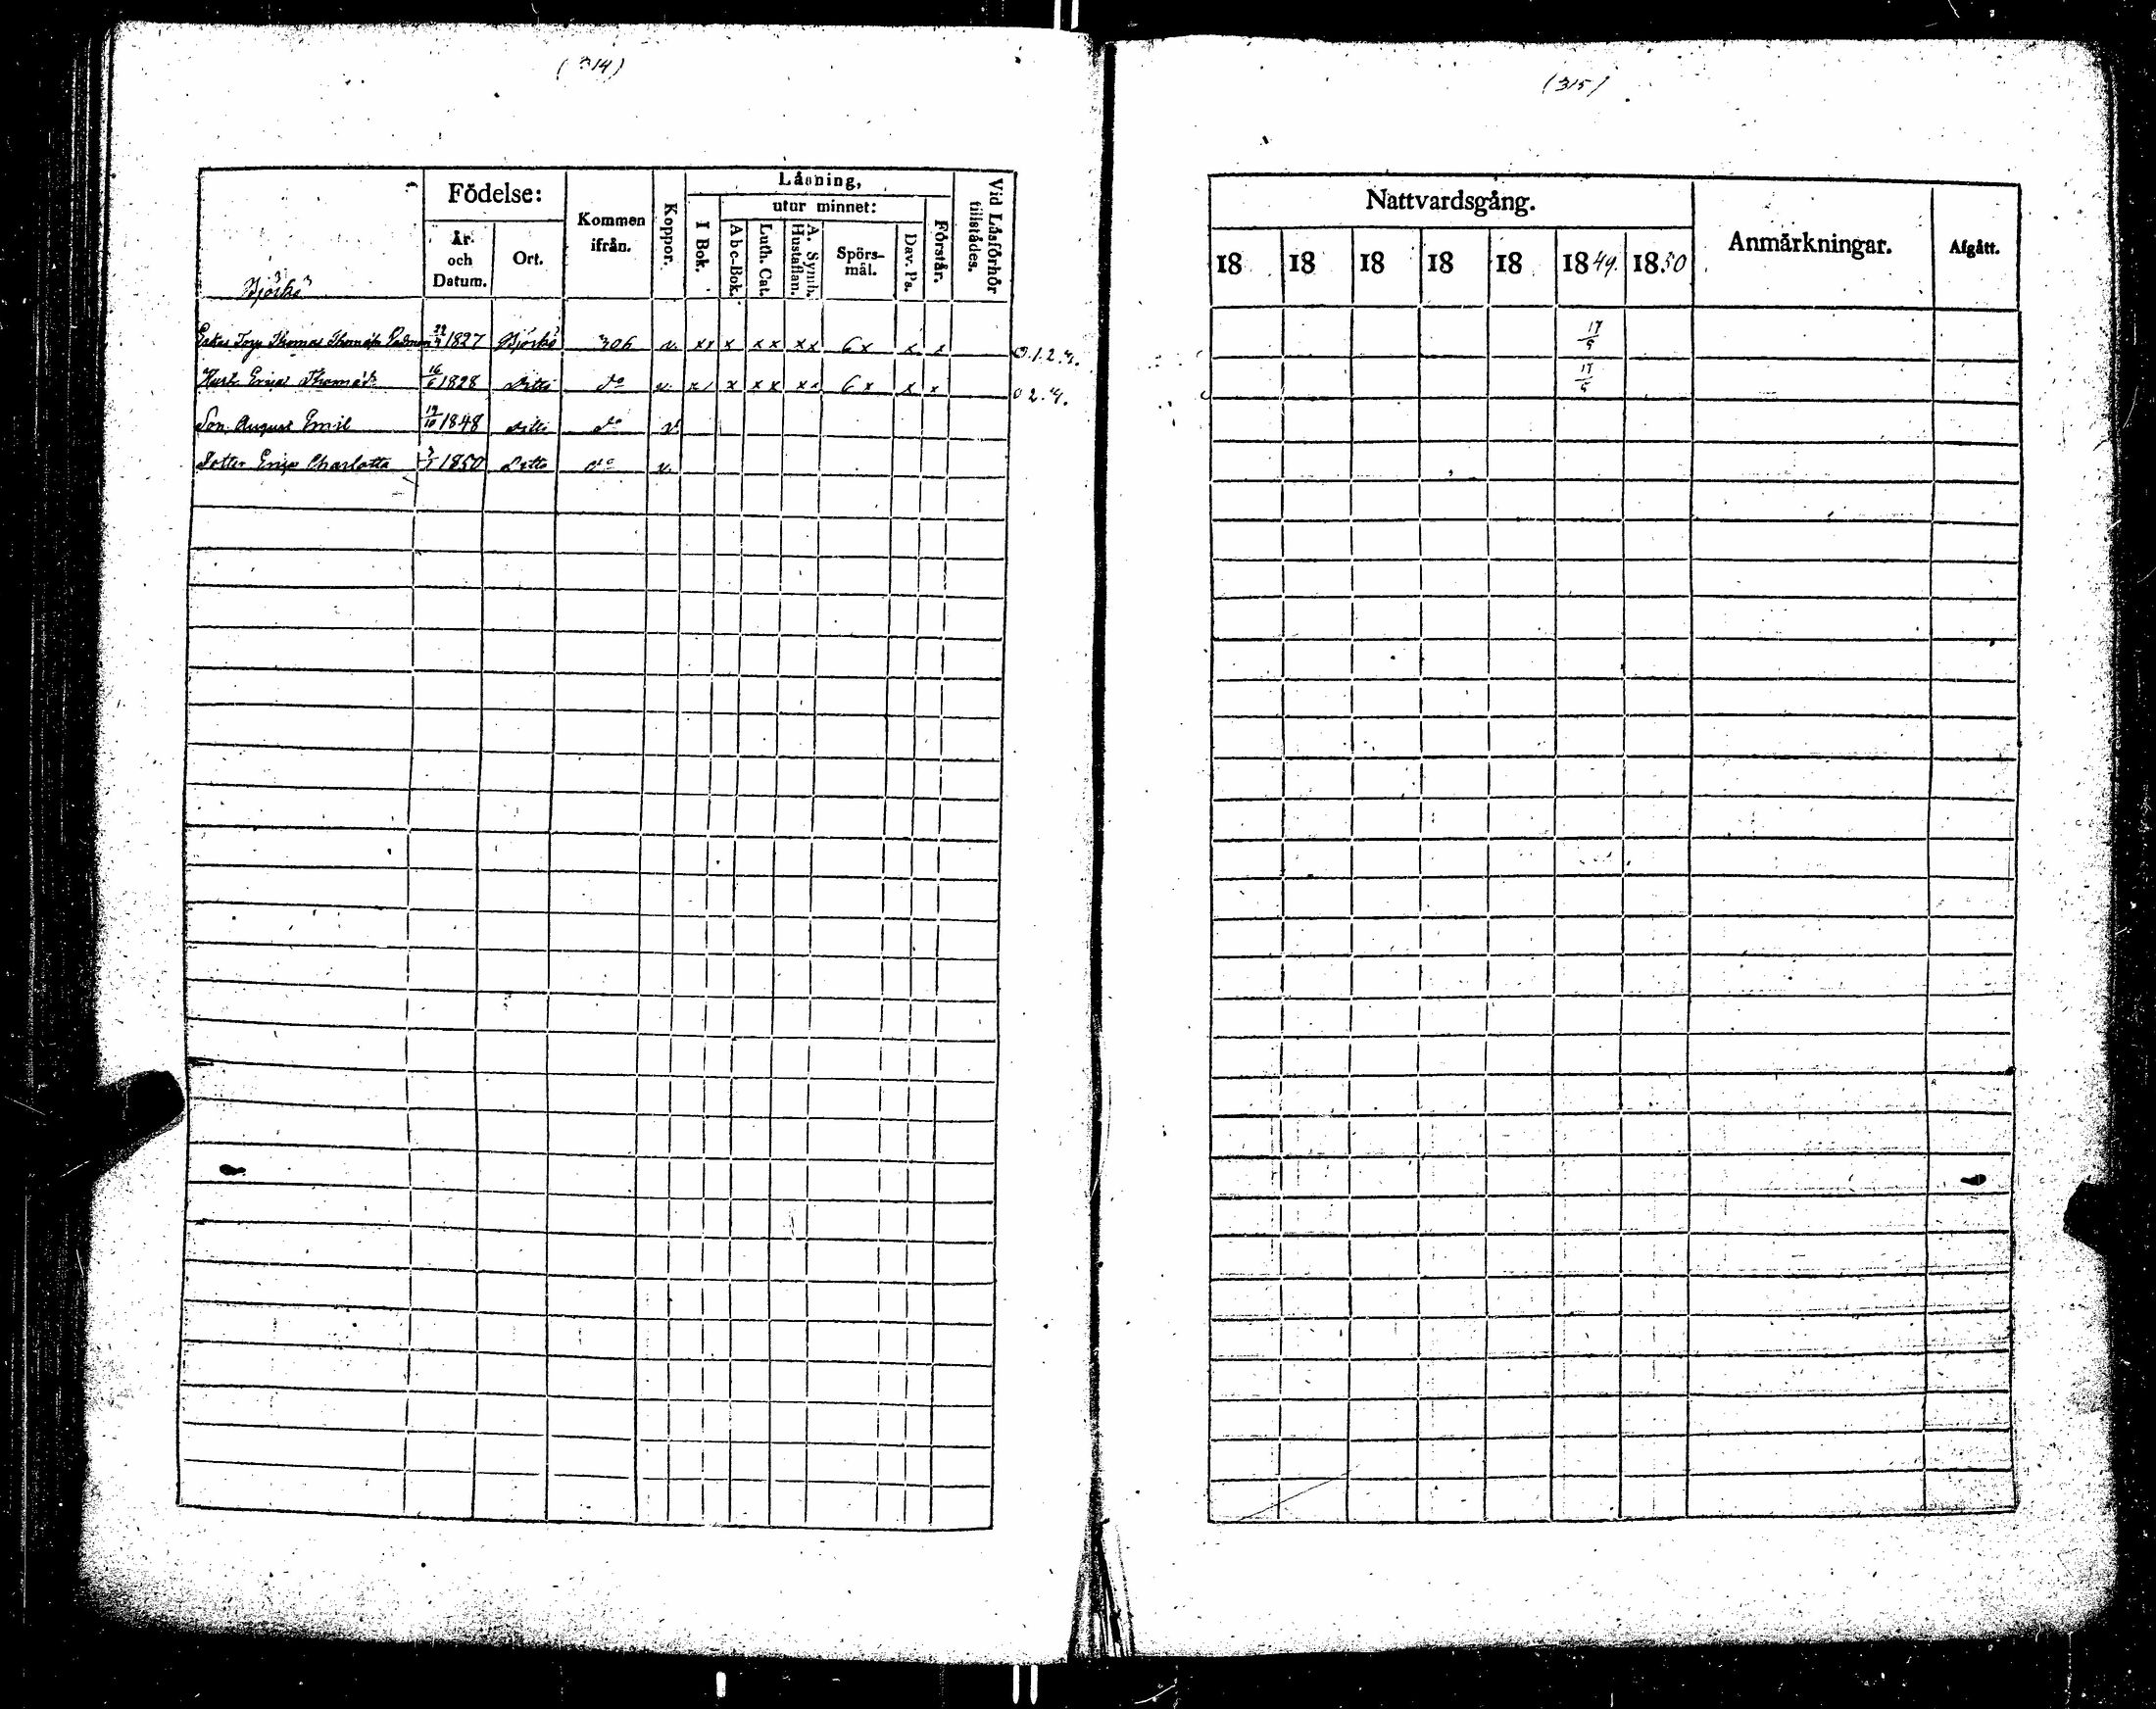 (314)
Björkö
Födelse:
År och Datum.
Ort.
Kommen ifrån.
Koppor.
Läsning,
I Bok.
utur minnet:
Abc-Bok.
Luth. Cat.
A. Symb. Hustaflan.
Spörs-mål.
Dav. Ps.
Förstår.
Vid Läsförhör tillstädes.
Thomas 1827 Björkö 306 v. xx x xx xx 6x x x 1.2.4.
Hust. Erica 16/6 1828 Ditto do v. x x xx xx 6x x x 2.4.
Son August Emil 19/10 1848 Ditto do v.
Dotter Erica Charlotta 1850 Ditto do v.
(315)
Nattvardsgång.
18 18 18 18 18 1849. 1850
Anmärkningar.
Afgått.
17/5
17/5